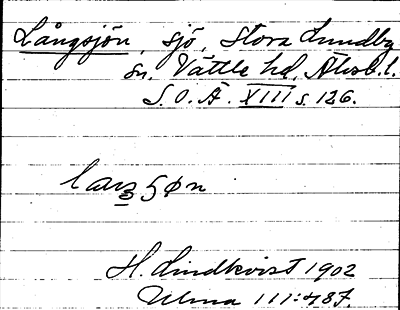 Långsjön, sjö, Stora Lundby
sn. Vättle hd, Älvsb. l.
S. O. Ä. XIII s. 126.
H. Lindkvist 1902
Ulma 111:487